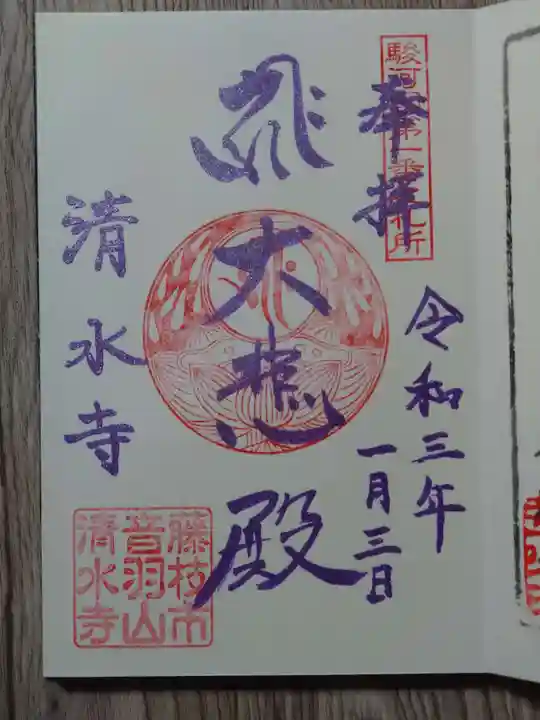 駿河國第一番札所
奉拝
令和三年
一月三日
大悲殿
清水寺
藤枝市
音羽山
清水寺